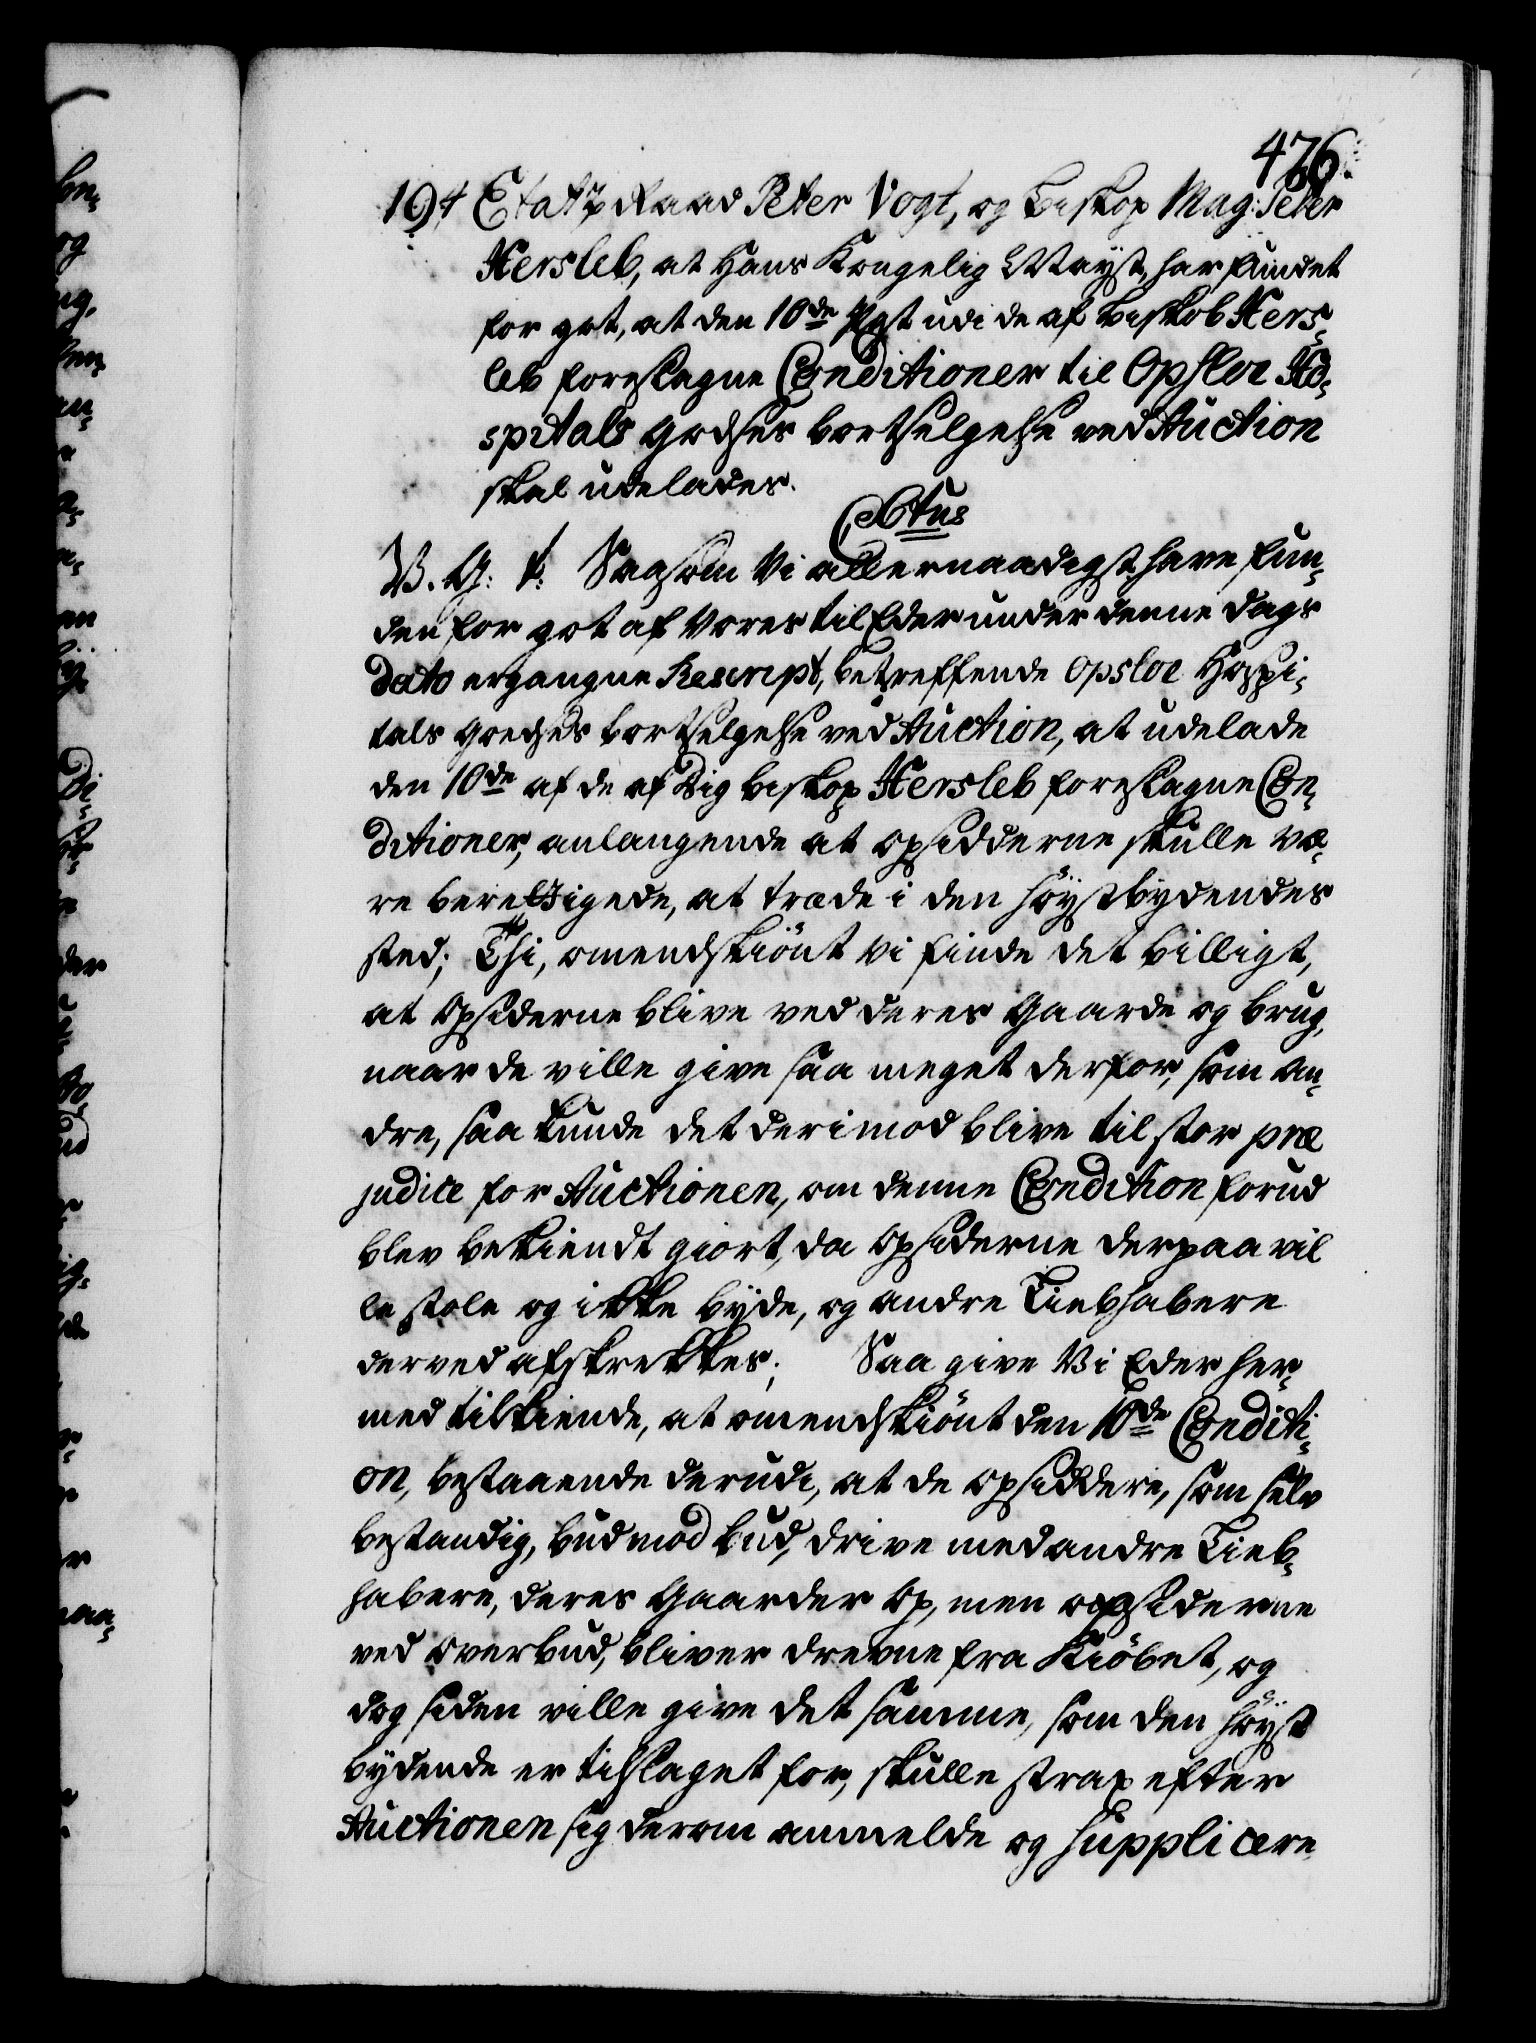 476.
194 Etatz Raad Peter Vogt, og Biskop Mag: Peter
Hersleb, at Hans Kongelig Mayst, har fundet
for got, at den 10de Post udi de af Biskob Hers-
leb foreslagne Conditioner til Opsloe Ho-
spitals Godses bortselgelse ved Auction
skal udelades.
C6tus
V. G: t: Saasom Vi allernaadigst have fun-
den for got af Vores til Eder under denne Dags
Dato ergangne Rescript, betreffende Opsloe Hospi-
tals Goedses bortselgelse ved Auction, at udelade
den 10de af de af Dig Biskop Hersleb foreslagne Con-
ditioner, anlangende at Opsidderne skulle væ-
re berettigede, at træde i den Høystbydendes
sted; Thi, omendskiønt Vi finde det billigt,
at Opsiderne blive ved deres Gaarde og brug,
naar de ville give saa meget derfor, som an-
dre, saa kunde det derimod blive til stor præ
judice for Auctionen, om denne Condition forud
blev bekiendt giort, da Opsiderne derpaa vil
le stole og ikke byde, og andre Liebhabere
derved afskrekkes; Saa give Vi Eder her-
med tilkiende, at omendskiønt den 10de Conditi-
on, bestaaende derudi, at de Opsiddere, som selv
bestandig, bud mod bud, drive med andre Lieb-
habere, deres Gaarder op, men opsiderne
ved overbud, bliver drevne fra Kiøbet, og
dog siden ville give det samme, som den høyst
bydende er tilslaget for, skulle strax efter
Auctionen sig derom anmelde og supplicere